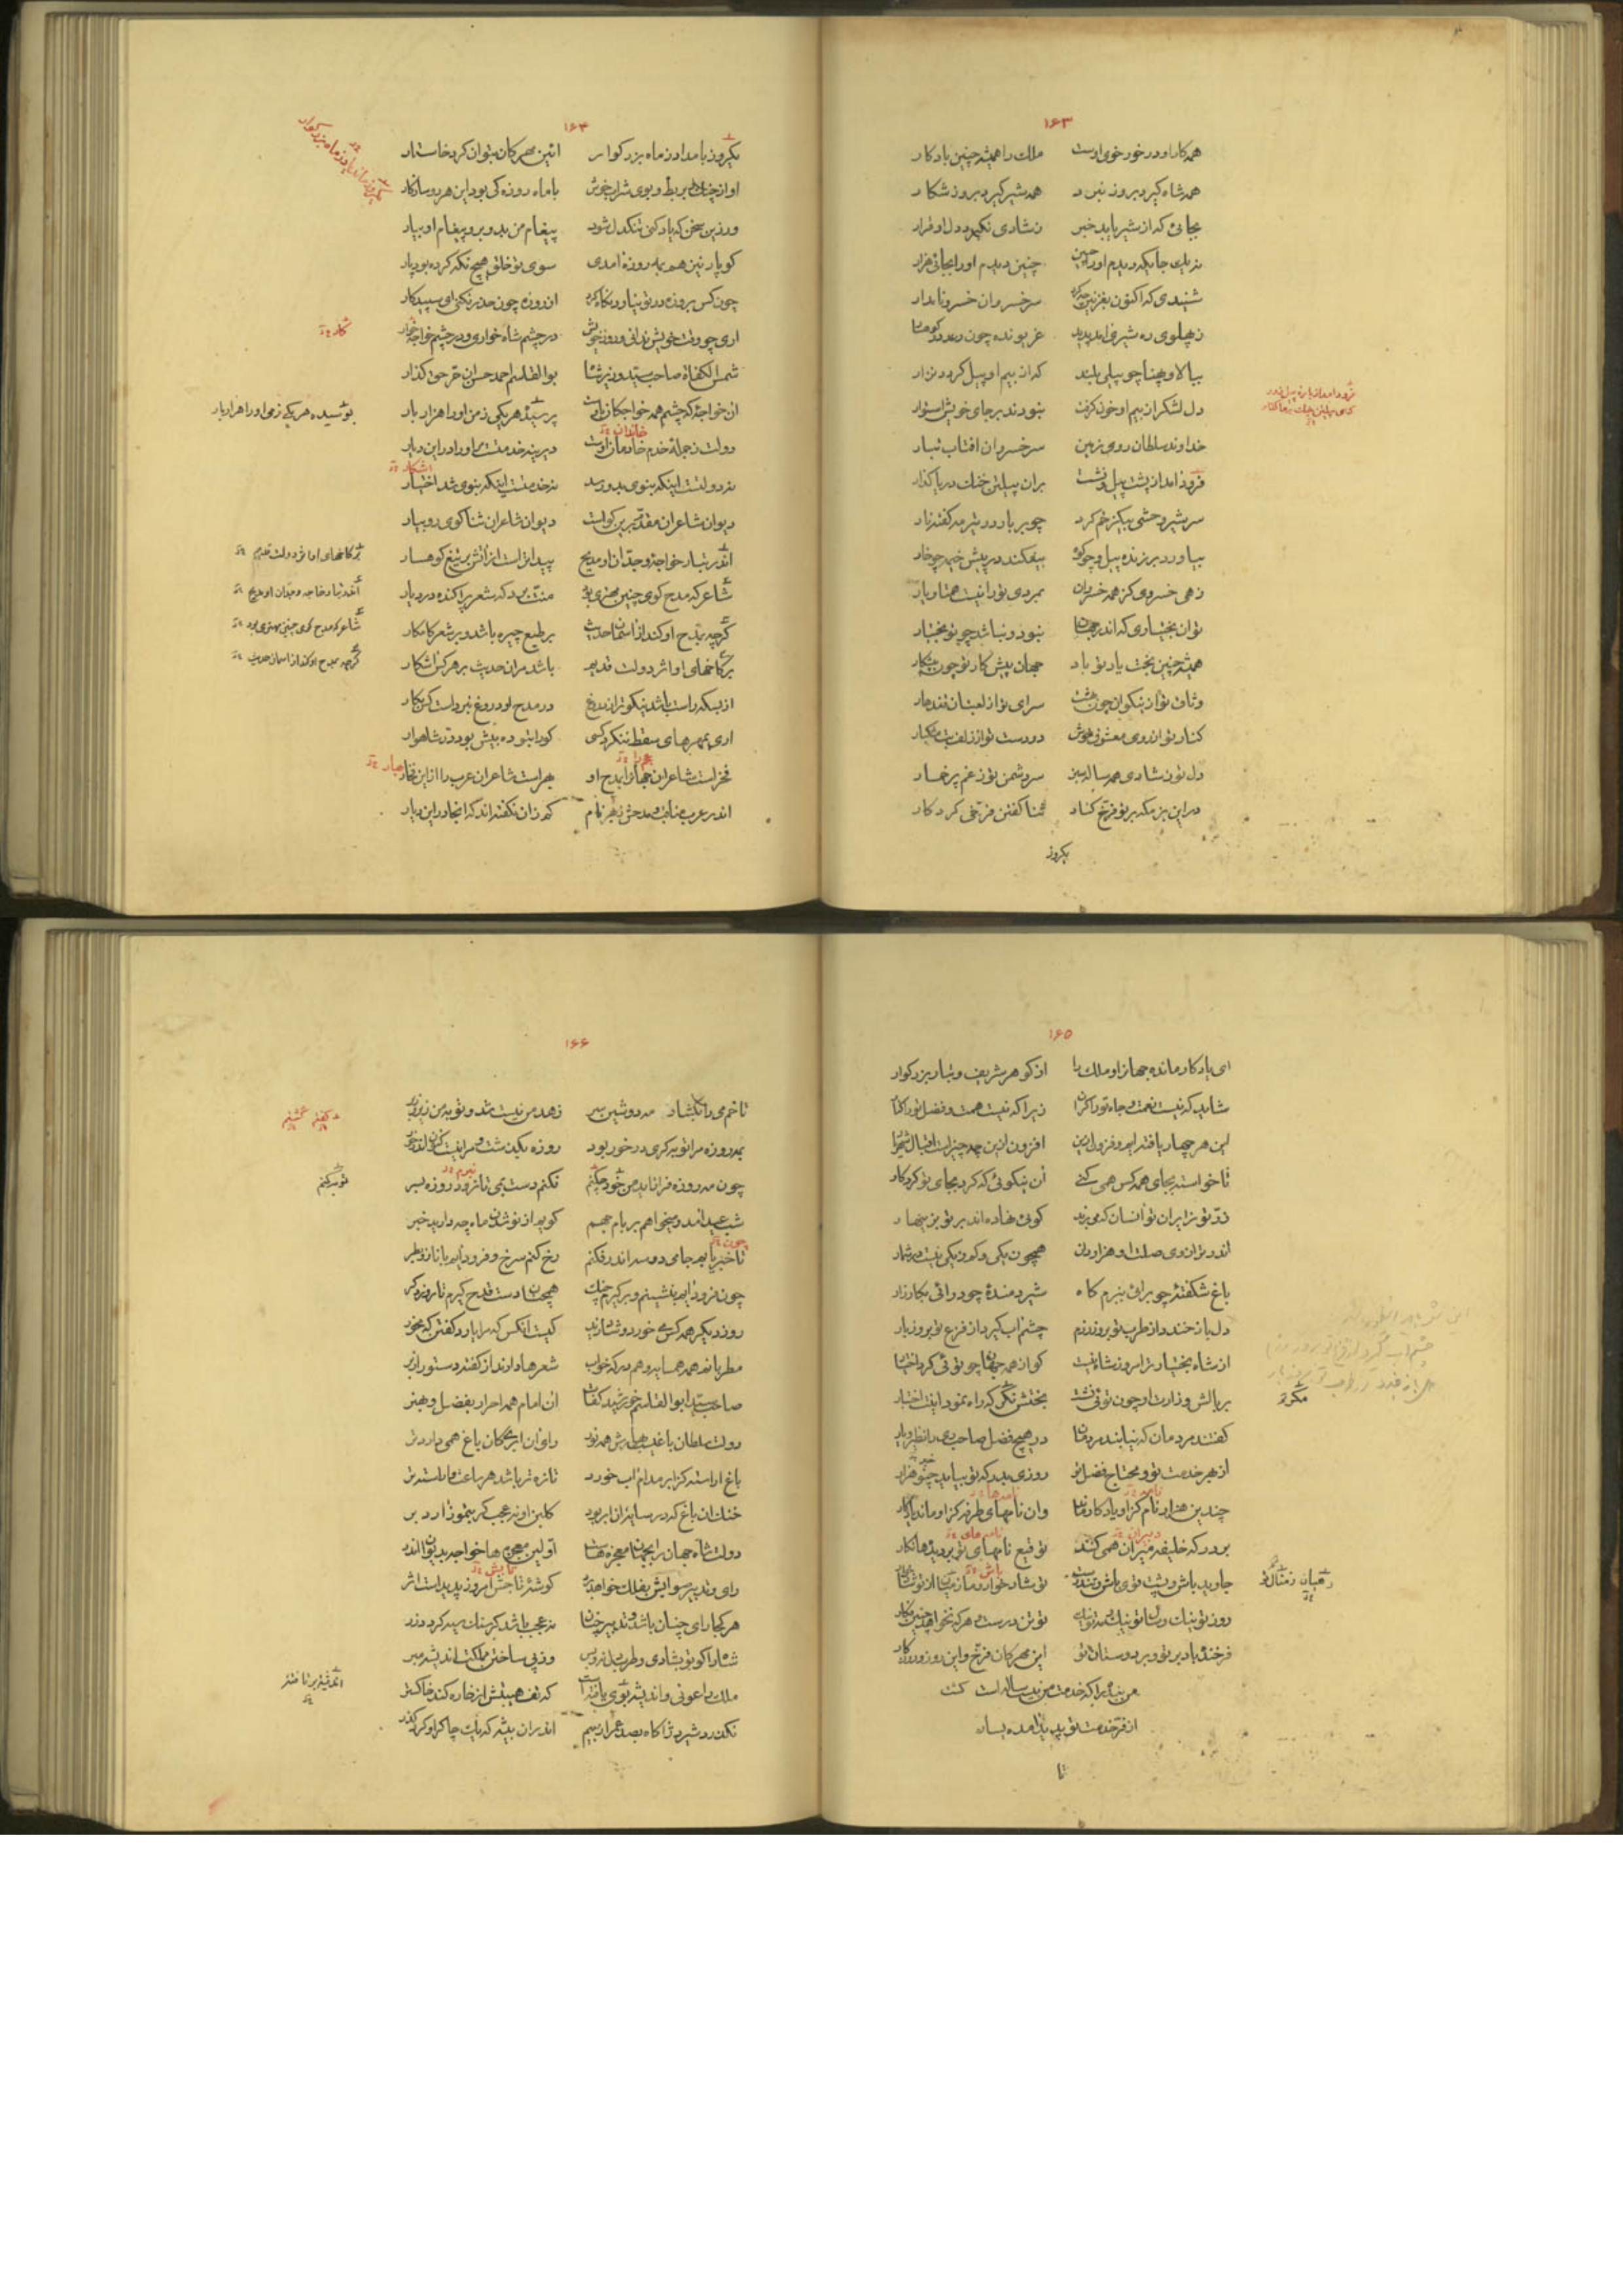 ۱۶۳
همه کار او در خور خوی اوست ملک را همیشه چنین باد کار
همه شاه گیرد بروز نبرد همه شیر گیرد بروز شکار
بجائی که از شیر یابد خبر ز شادی نگیرد دل او قرار
نه یک جایگه دیدم او را چنین چنین دیدم او را بجائی هزار
شنیدی که اکنون بغزنین چه کرد سر خسروان خسرو نامدار
ز پهلوی ره شیری آمد پدید غریونده چون رعد در کوهسار
ببالا و پهنا چو پیلی بلند که از بیم او پیل کردی نزار
دل لشکر از بیم او خون گرفت نبودند بر جای خویش استوار
خداوند سلطان روی زمین سر خسروان آفتاب تبار
فرود آمد از پشت پیل و نشست بران پیلتن خنگ دریا گذار
سر شیر وحشی بیک زخم کرد چو بر بار دو نیمه کفته نار
بیاورد بر زنده پیل و چو کوه بیفکند در پیش خیمه چو خار
زهی خسروی کز همه خسروان بمردی ترا نیست همتا و یار
تو آن بختیاری که اندر جهان نبود و نباشد چو تو بختیار
همیشه چنین بخت یار تو باد جهان پیش کار تو چون پیشکار
وثاق تو از نیکوان چون بهشت سرای تو از لعبتان قندهار
کنار تو از روی معشوق خوش دو دست تو از زلف بت مشکبار
دل تو ز شادی همه ساله سبز سر دشمن تو ز غم پر خمار
در این بزمگه بر تو فرخ کناد ثنا گفتن فرخی کردگار
یکروز
۱۶۴
یکروز بامداد ز ماه بزرگوار آئین مهرگان بتوان کرد خاستار
آواز چنگ و بربط و بوی شراب خوش با ماه روزه کی بود این هر دو سازگار
ور زین سخن که یاد کنی تنگدل شود پیغام من بدو بر و پیغام او بیار
گو پار نیز هم به مه روزه آمدی سوی تو خلق هیچ نگه کرده بود پار
چون کس بروزه در تو نیارد نگاه کرد از روزه چون حذر نکنی ای سپیدکار
آری چو وقت خویش ندانی و روز خویش در چشم شاه خواری و در چشم خواجه خوار
شمس الکفاة صاحب سید وزیر شاه بوالقاسم احمد حسن آن حر حق گذار
آن خواجه که چشم همه خواجگان اوست بر سیم هر یکی ز من او را هزار بار
دولت ز جمله خدم خادمان اوست دیرینه خدمتست مر او را در این دیار
نه دولتست اینکه بنوی بدو رسد نه خدمتست اینکه بنوی شد اختیار
دیوان شاعران مقدم برین گواست دیوان شاعران ثناگوی رو بیار
اندر تبار خواجه و جدان او مدیح پیداترست از آتش بر تیغ کوهسار
شاعر که مدح گوی چنین مهتری بود منت برد که شعر پراکنده در دیار
گرچه بمدح او کند از آسمان حدیث بر طبع چیره باشد و بر شعر کامگار
بر کاخهای او اثر دولت قدیم باشد مر آن حدیث بر هر کس آشکار
از بسکه راست باشد نیکو تر از دروغ در مدح او دروغ نبرده است کس بکار
آری بمهرهای سقط ننگرد کسی کو را بتوده پیش بود در شاهوار
فخر است شاعران جهان را بمدح او بهر است شاعران عرب را از این فخار
اندر عرب مناقب و مدحش بهر نام کم زان نگفته اند که اینجا در این دیار
بوسیده هر یکی زمی او را هزار بار
بر کاخهای او اثر دولت قدیم
اندر تبار خاجه و جدان او مدیح
شاعر که مدح گوی چنین مهتری بود
گرچه بمدح او کند از آسمان حدیث
۱۶۵
ای یادگار مانده جهان را و ملک را از گوهر شریف و تبار بزرگوار
شاید که نیست نعمت و جاه تو را کران زیرا که نیست همت و فضل تو را کنار
این هر چهار یافته ایم و فزون ازین افزون ازین چه چیز است اقبال شهریار
ناخواسته بجای همه کس همی کنی آن نیکوئی که کرد بجای تو کردگار
زر تو زایران تو آنسان که می برند گوئی نهاده اند بر تو بزینهار
اندر ترازوی صلت او هزار دان همچون یکی و کم ز یکی نیست در شمار
باغ شکفته چو برآئی ببزم گاه شیر دمنده چو درآئی بکارزار
دل باز خندد از طرب تو بروز بزم چشم آب گیرد از فزع تو بروز بار
از شاه بختیارتر امروز شاه نیست کو از همه جهان چو توئی کرد اختیار
بر بالش وزارت او چون توئی نشست بختش نگر که راه نمود اینت اختیار
گفتند مردمان که نیابند مردمان در هیچ فضل صاحب ری را نظیر و یار
از بهر خدمت تو و محتاج فضل تو روزی بدر که تو بیاید چنو هزار
چندین هزار نام کزو یادگار ماند وان نامهای طرفه کزو ماند یادگار
بر در گه خلیفه دبیران همی کنند توقیع نامهای تو بر دیدها نگار
جاوید باش و پشت قوی باش و تندرست تو شاد خوار و ما ز تو شاد
روز تو نیک و سال تو نیک تو تن درست و هر که نخواهد چنین فکار
فرخنده باد بر تو و بر دوستان تو این مهرگان فرخ و این روز و روزگار
من بنده را که خدمت من بیست ساله است گشت
از فر خدمت تو پدید آمده یسار
تا
مگر تو
۱۶۶
تا خم می را بگشاد مه دوشین سر زهد من نیست شد و توبه من زیر و زبر
بمه روزه مرا توبه اگر در خور بود روزه بگذشت و مرا نیست کنون اندر خور
چون مه روزه فراز آید من خود چکنم نکنم دست بمی تا نرود روزه بسر
شب عید آمد و میخواهم بر بام جهم گویم از نوشدن ماه چه دارید خبر
تا خبر یابم جامی دو سه اندر فکنم رخ کنم سرخ و فرود آیم با ناز و بطر
چون فرود آیم بنشینم و برگیرم چنگ همچنان دست قدح گیرم تا روز دگر
روز دیگر همه کس می خورد و شاد زید کیست آنکس که مرا یارد گفتن که مخور
مطرب باشد همه همسایه و هم درگه خواب شعرها دارند از گفته دستور از بر
صاحب سید ابوالقاسم خورشید کفات آن امام همه احرار بفضل و هنر
دولت سلطان باغیست بهارش همه نور رای آن ابر کان باغ همی دارد تر
باغ آراسته کز ابر مدام آب خورد تازه تر باشد هر ساعت و آراسته تر
خنک آن باغ که در سایه آن ابر بود گلبن او نه عجب گر بتموز آرد بر
دولت شاه جهان را بجهان معجزهاست اولین معجزها خواجه بدیوان اندر
رای و تدبیر سوی فلک خواهد برد گوشه تاجش امروز پدید است اثر
هر کجا رای چنان باشد و تدبیر چنان نه عجب باشد اگر سنگ سیه گردد زر
شاه را گو تو بشادی و طرب دل نه و بس وز پی ساختن مملکت اندیشه مبر
ملک را عونی و اندیشه بری یافته است که تف هیبتش از خاره کند خاکستر
نگذرد شیر ژیان گاه بصد عمر از بیم اندر آن بیشه که یک چاکر او کرد گذر
توبه کنم